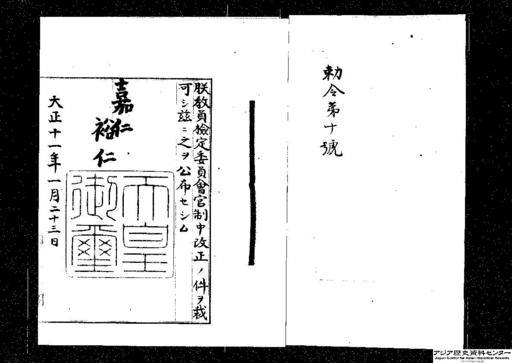 勅令第十號
朕教員檢定委員會官制中改正ノ件ヲ裁
可シ玆ニ之ヲ公布セシム
嘉仁
裕仁
天皇御璽
大正十一年一月二十三日
アジア歴史資料センター
Japan Center for Asian Historical Records